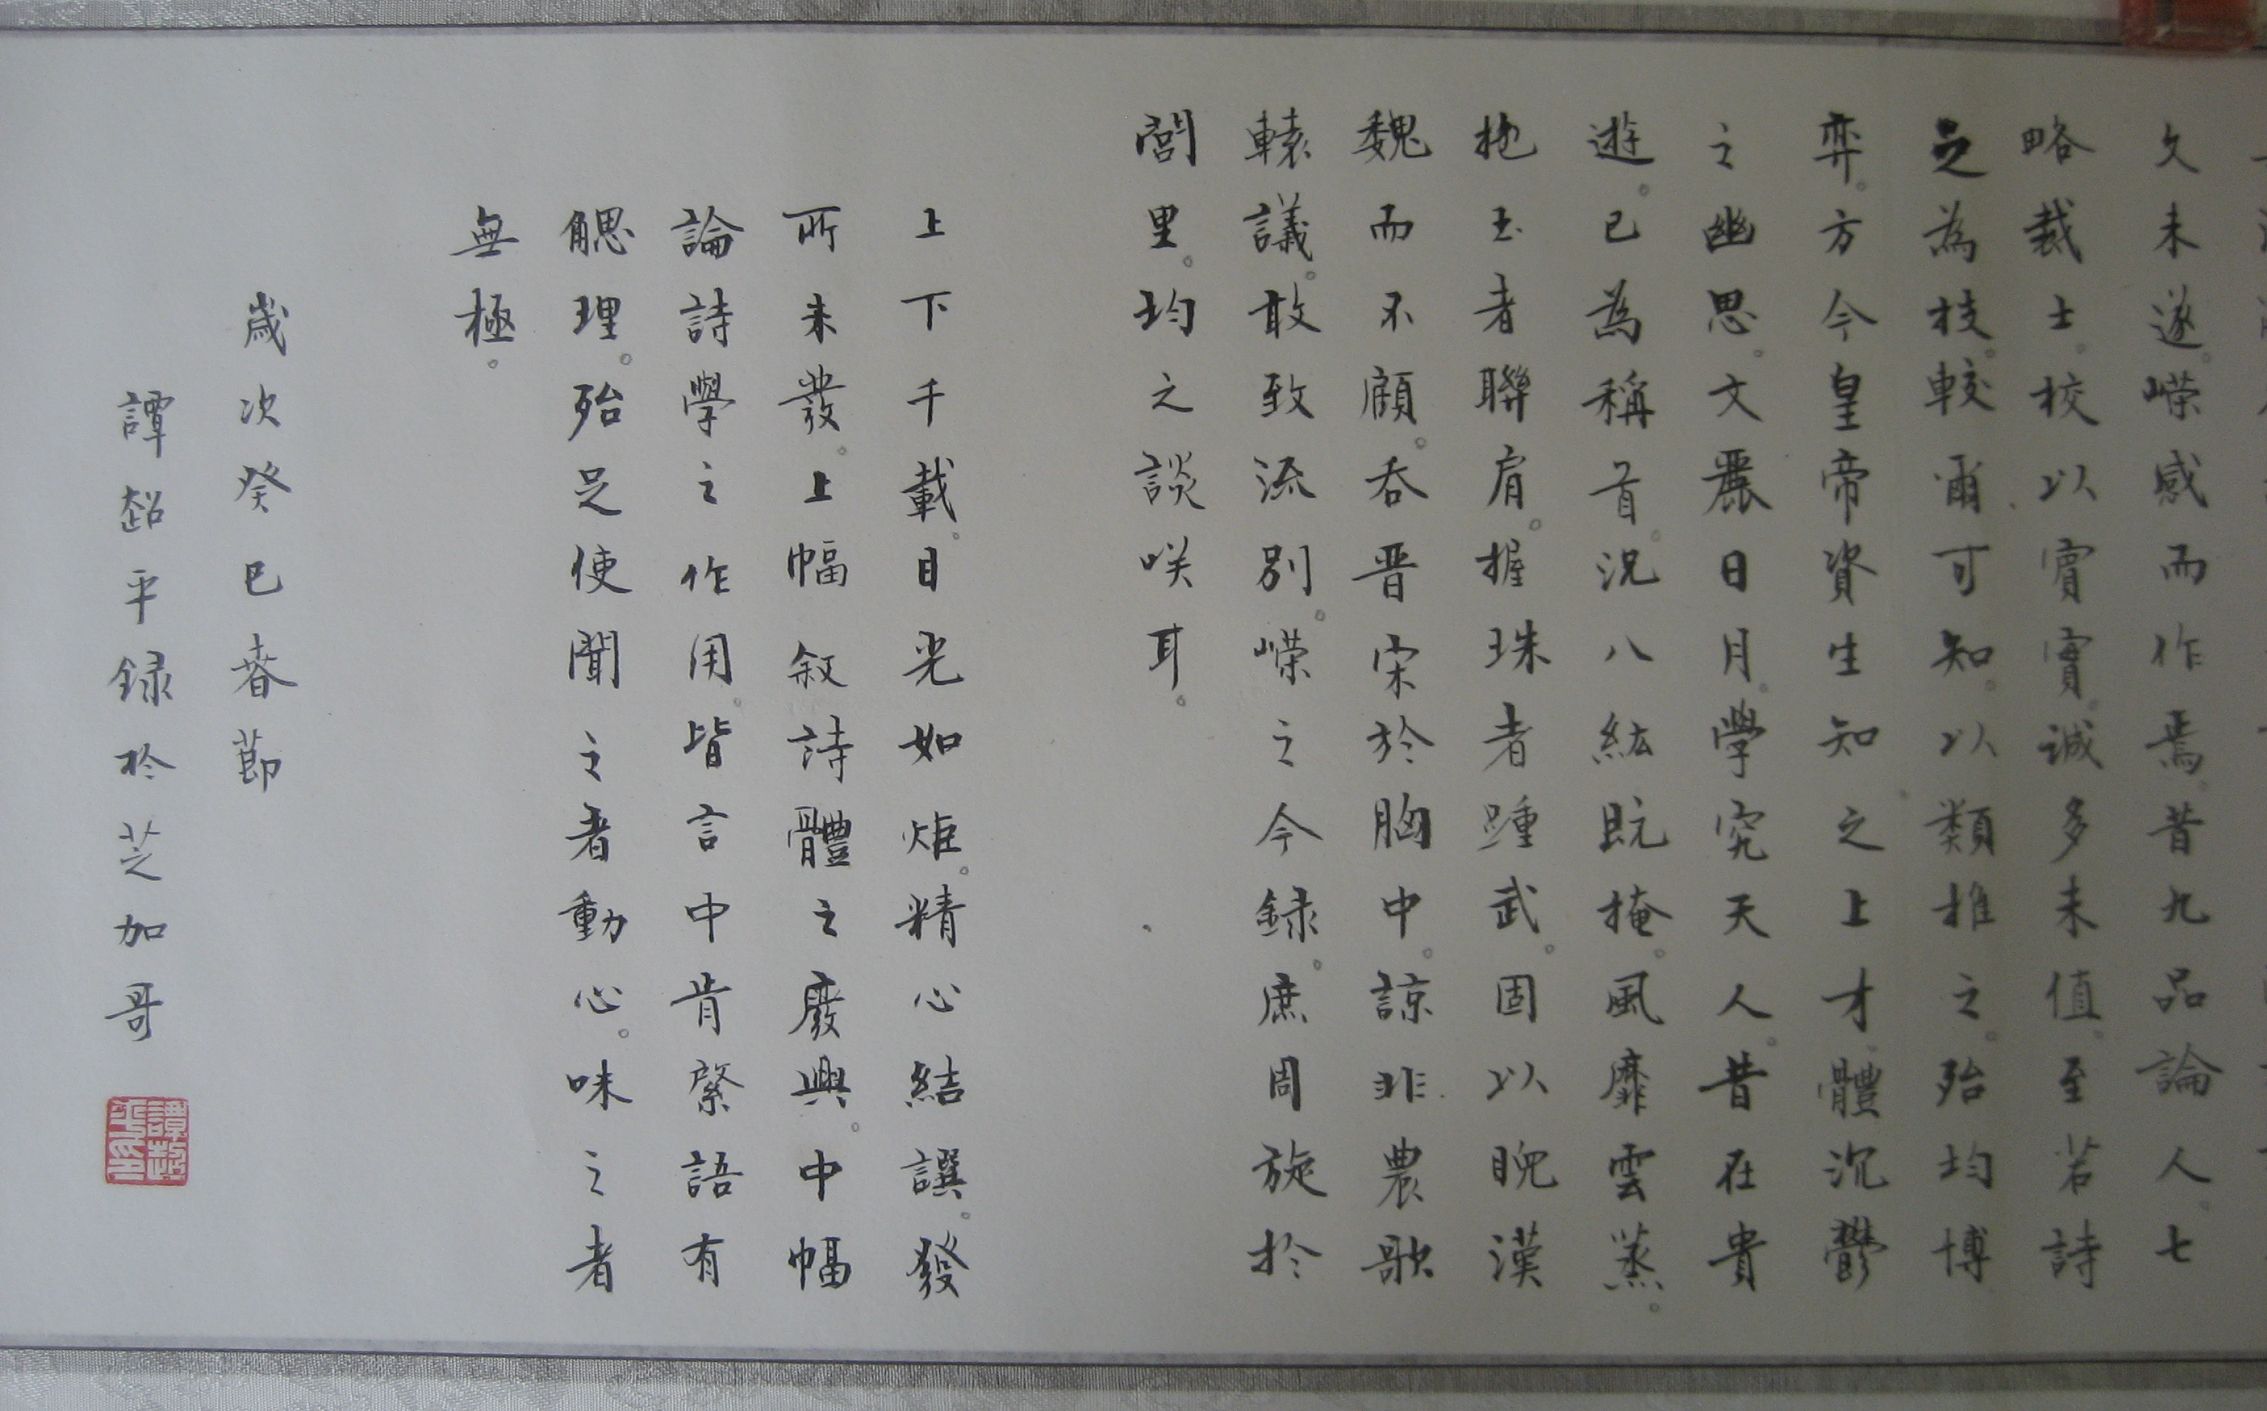 文未遂。嶸感而作焉。昔九品論人。七
略裁士。校以賓實。誠多未值。至若詩
之為技。較爾可知。以類推之。殆均博
弈。方今皇帝資生知之上才。體沉鬱
之幽思。文麗日月。學究天人。昔在貴
遊。已為稱首。況八紘既掩。風靡雲蒸。
抱玉者聯肩。握珠者踵武。固以睨漢
魏而不顧。吞晋宋於胸中。諒非農歌
轅議。敢致流別。嶸之今録。庶周旋於
閭里。均之談咲耳。
上下千載。目光如炬。精心結譔。發
所未發。上幅叙詩體之廢興。中幅
論詩學之作用。皆言中肯綮語有
鰓理。殆足使聞之者動心。味之者
無極。
歲次癸巳春節
譚超平録於芝加哥
譚超平印